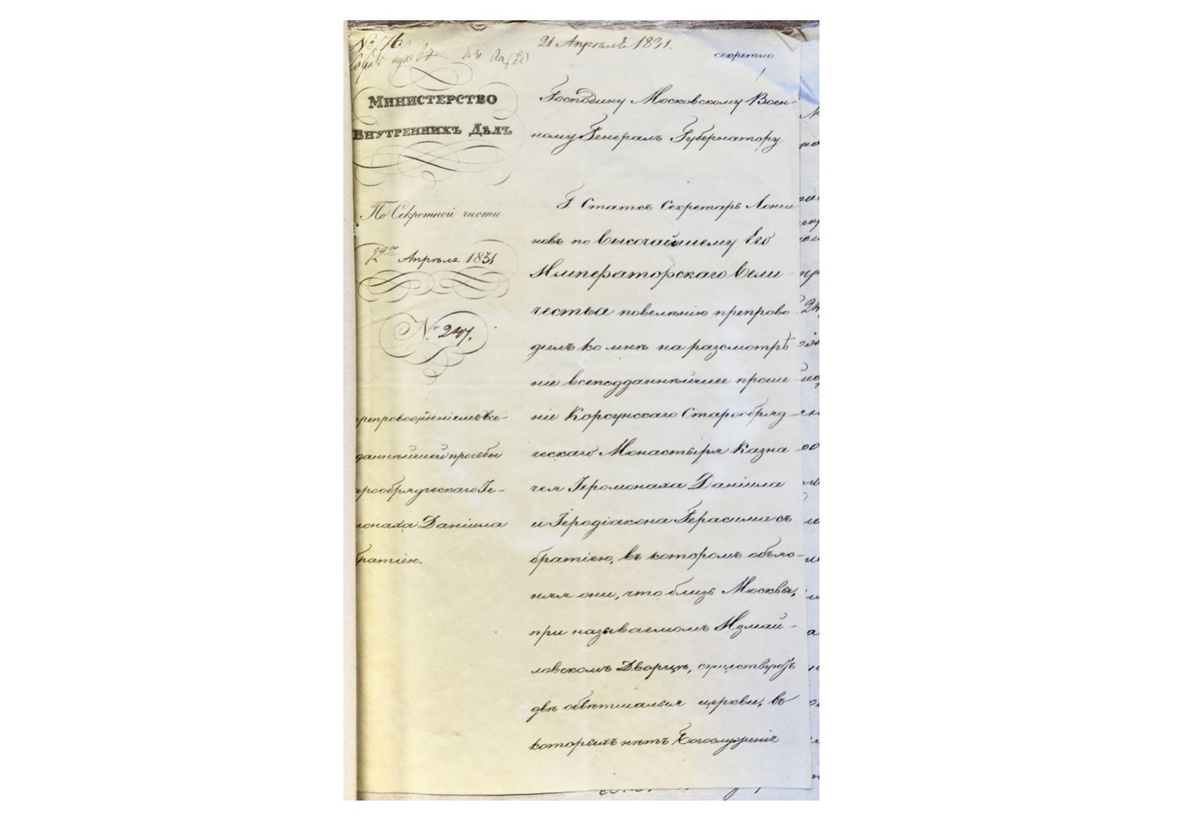 № 76
21 Апрѣля 1831.
секретно
Министерство
Внутреннихъ Дѣлъ
По Секретной части
2го Апрѣля 1831
№ 247.
репровожденіемъ все-
даннѣйшей просьбы
арообрядческаго Іе-
монаха Даніила
братіею.
Господину Московскому Воен-
ному Генералъ Губернатору
Г. Статсъ Секретарь Лонги-
новъ по Высочайшему Его
Императорскаго Вели-
чества повелѣнію препрово-
дилъ ко мнѣ на разсмотрѣ
ніе всеподданнѣйшее проше-
ніе Корсунскаго Старообряд-
ческаго Монастыря Казна
чея Іеромонаха Даніила
и Іеродіакона Герасима съ
братіею, въ которомъ объяс-
няя они, что близъ Москвы,
при называемомъ Измай-
ловскомъ Дворцѣ, существуютъ
двѣ обветшалыя церкви, въ
которыхъ нѣтъ Богослуженія